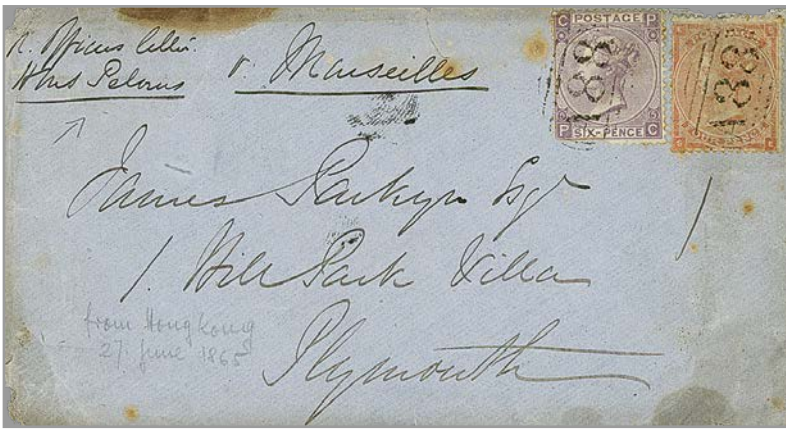 Officers letter.
HMS Pelorus
v. Marseilles
C POSTAGE P
188
P SIX-PENCE C
188
James Parkyn Esqr
1. Hill Park Villa
Plymouth
from Hong Kong
27 June 1865